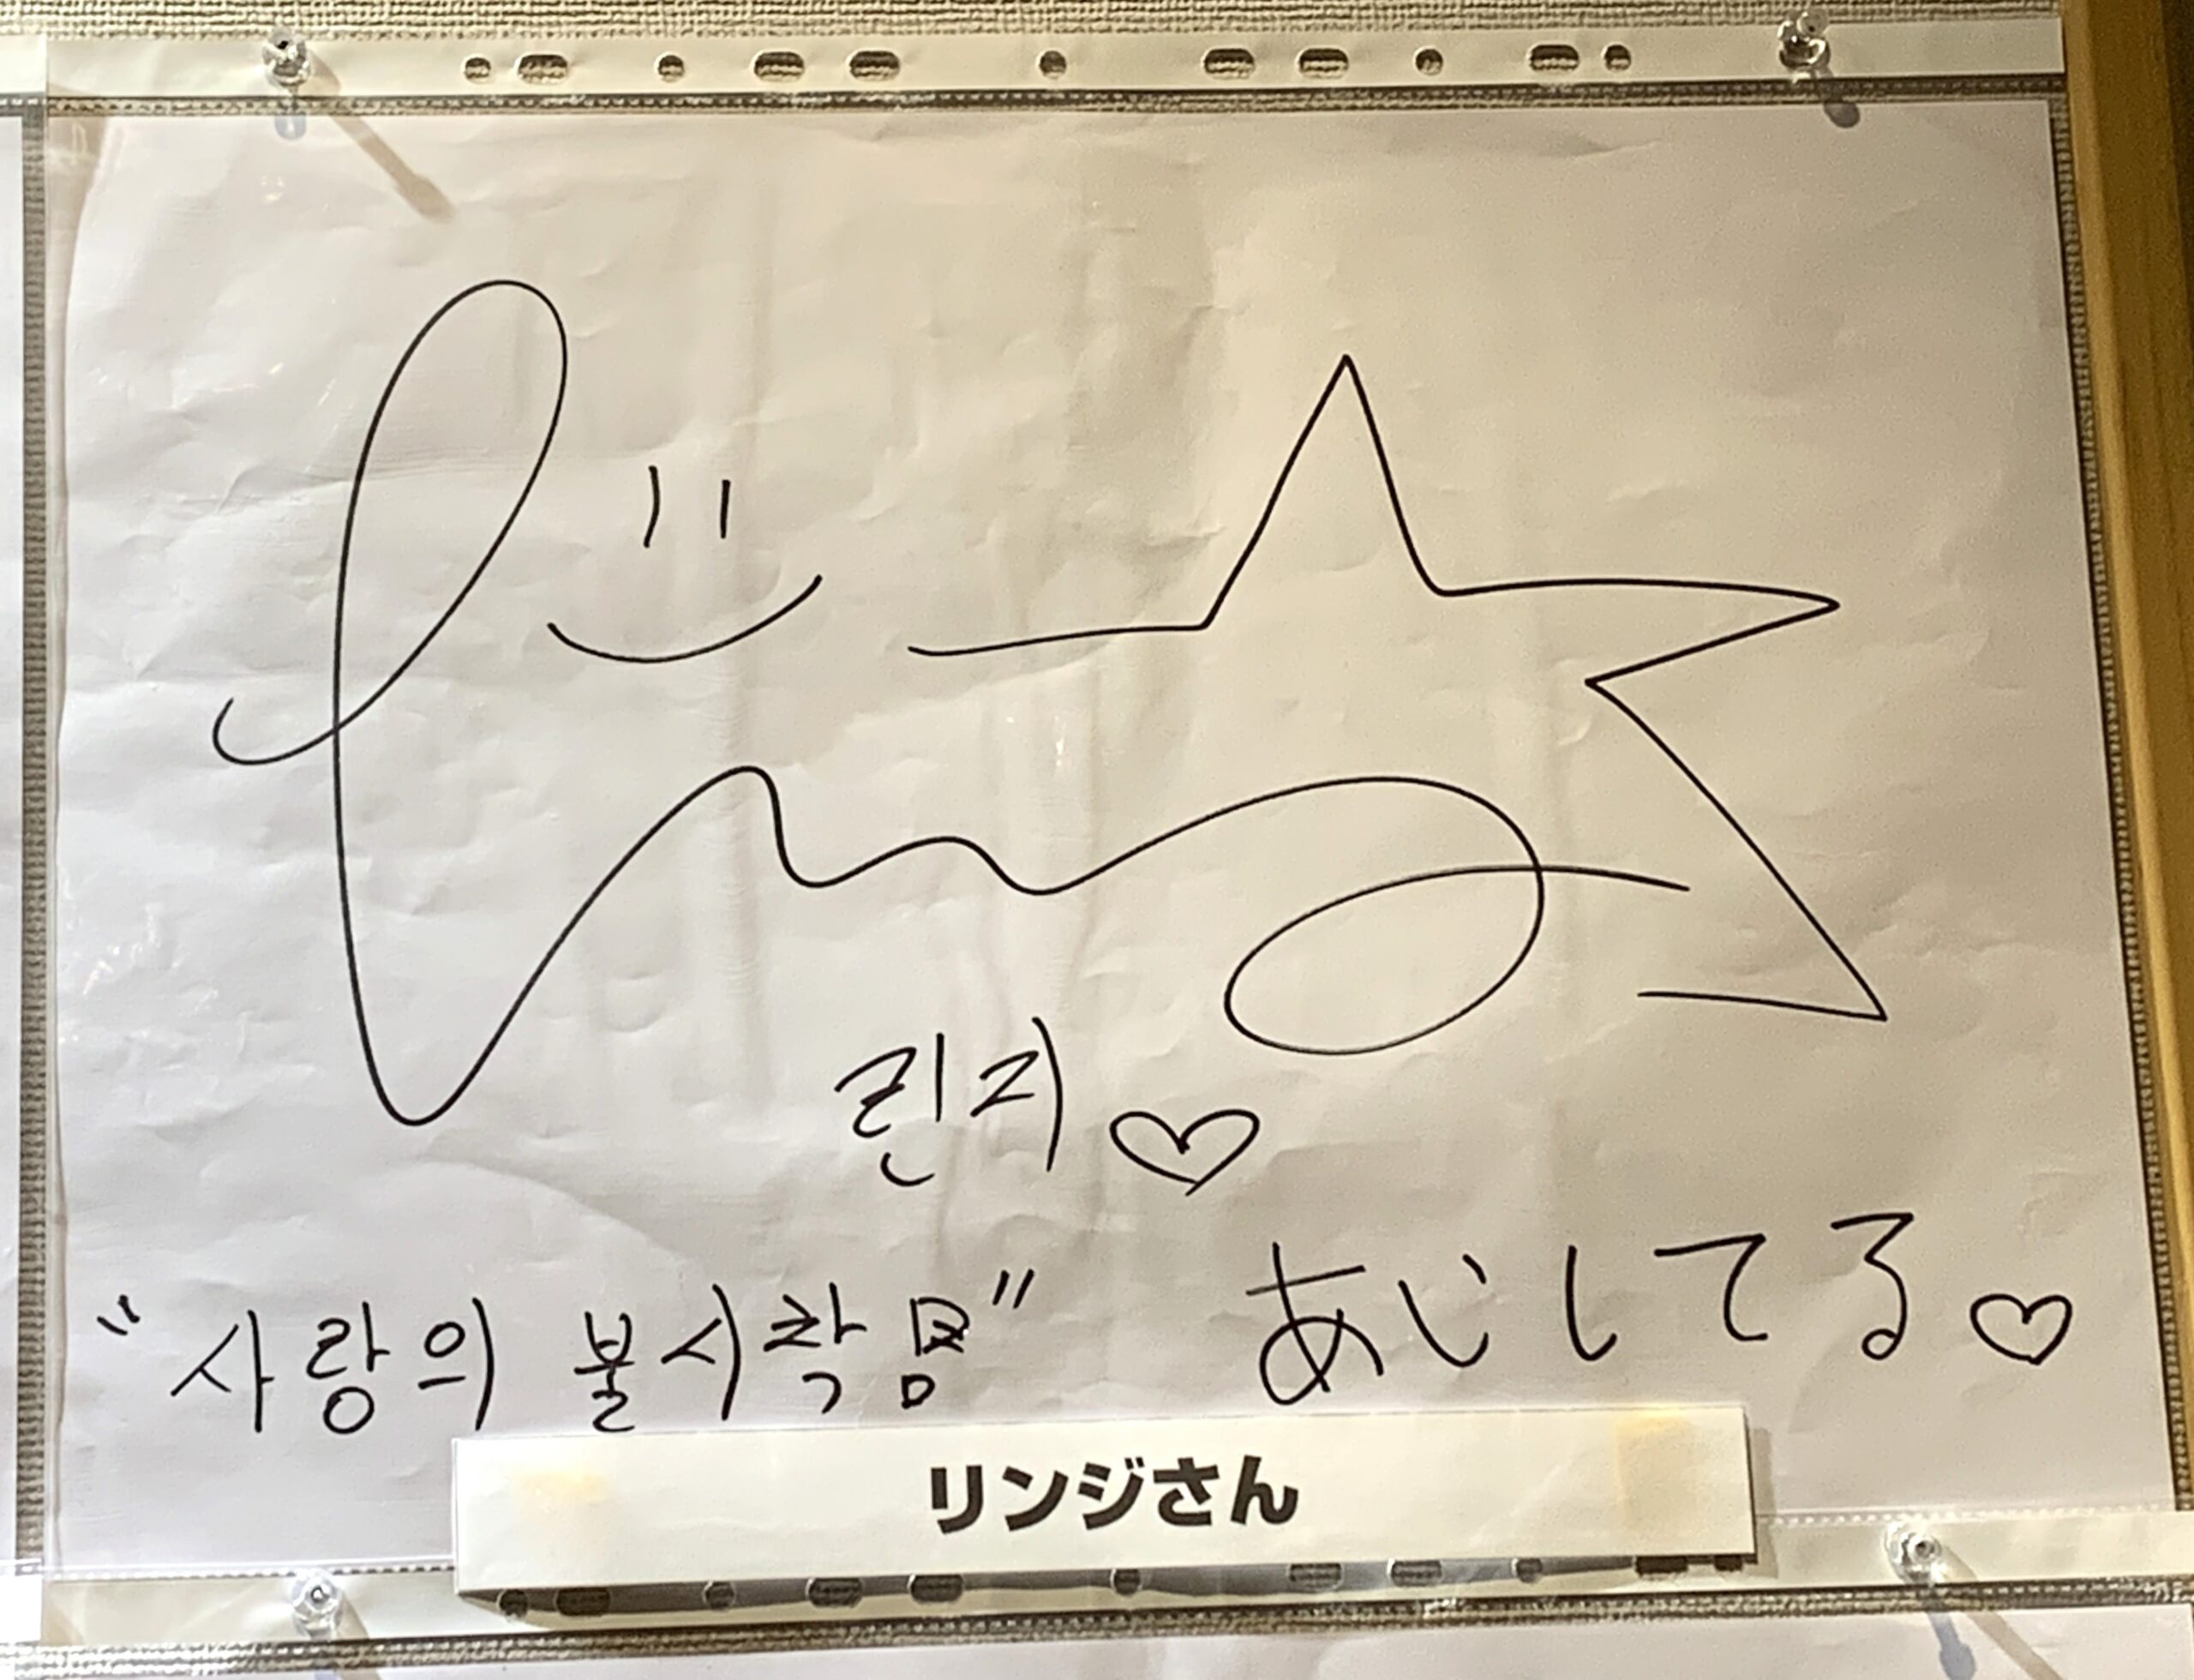 린지♡
"사랑의 불시착"
あいしてる♡
リンジさん